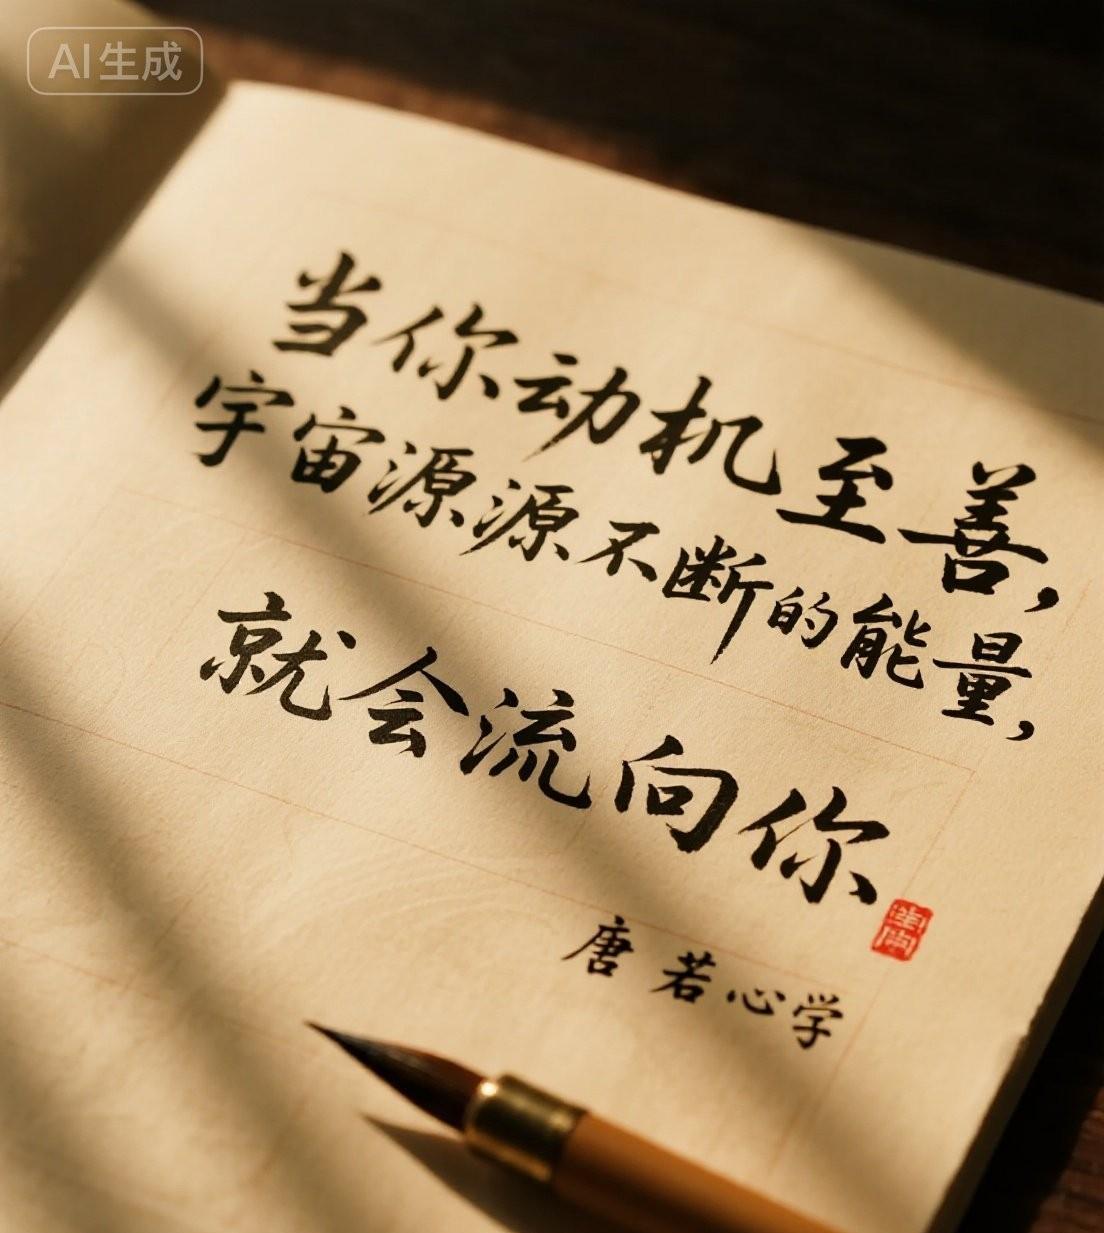 AI生成
当你动机至善，
宇宙源源不断的能量，
就会流向你
唐若心学